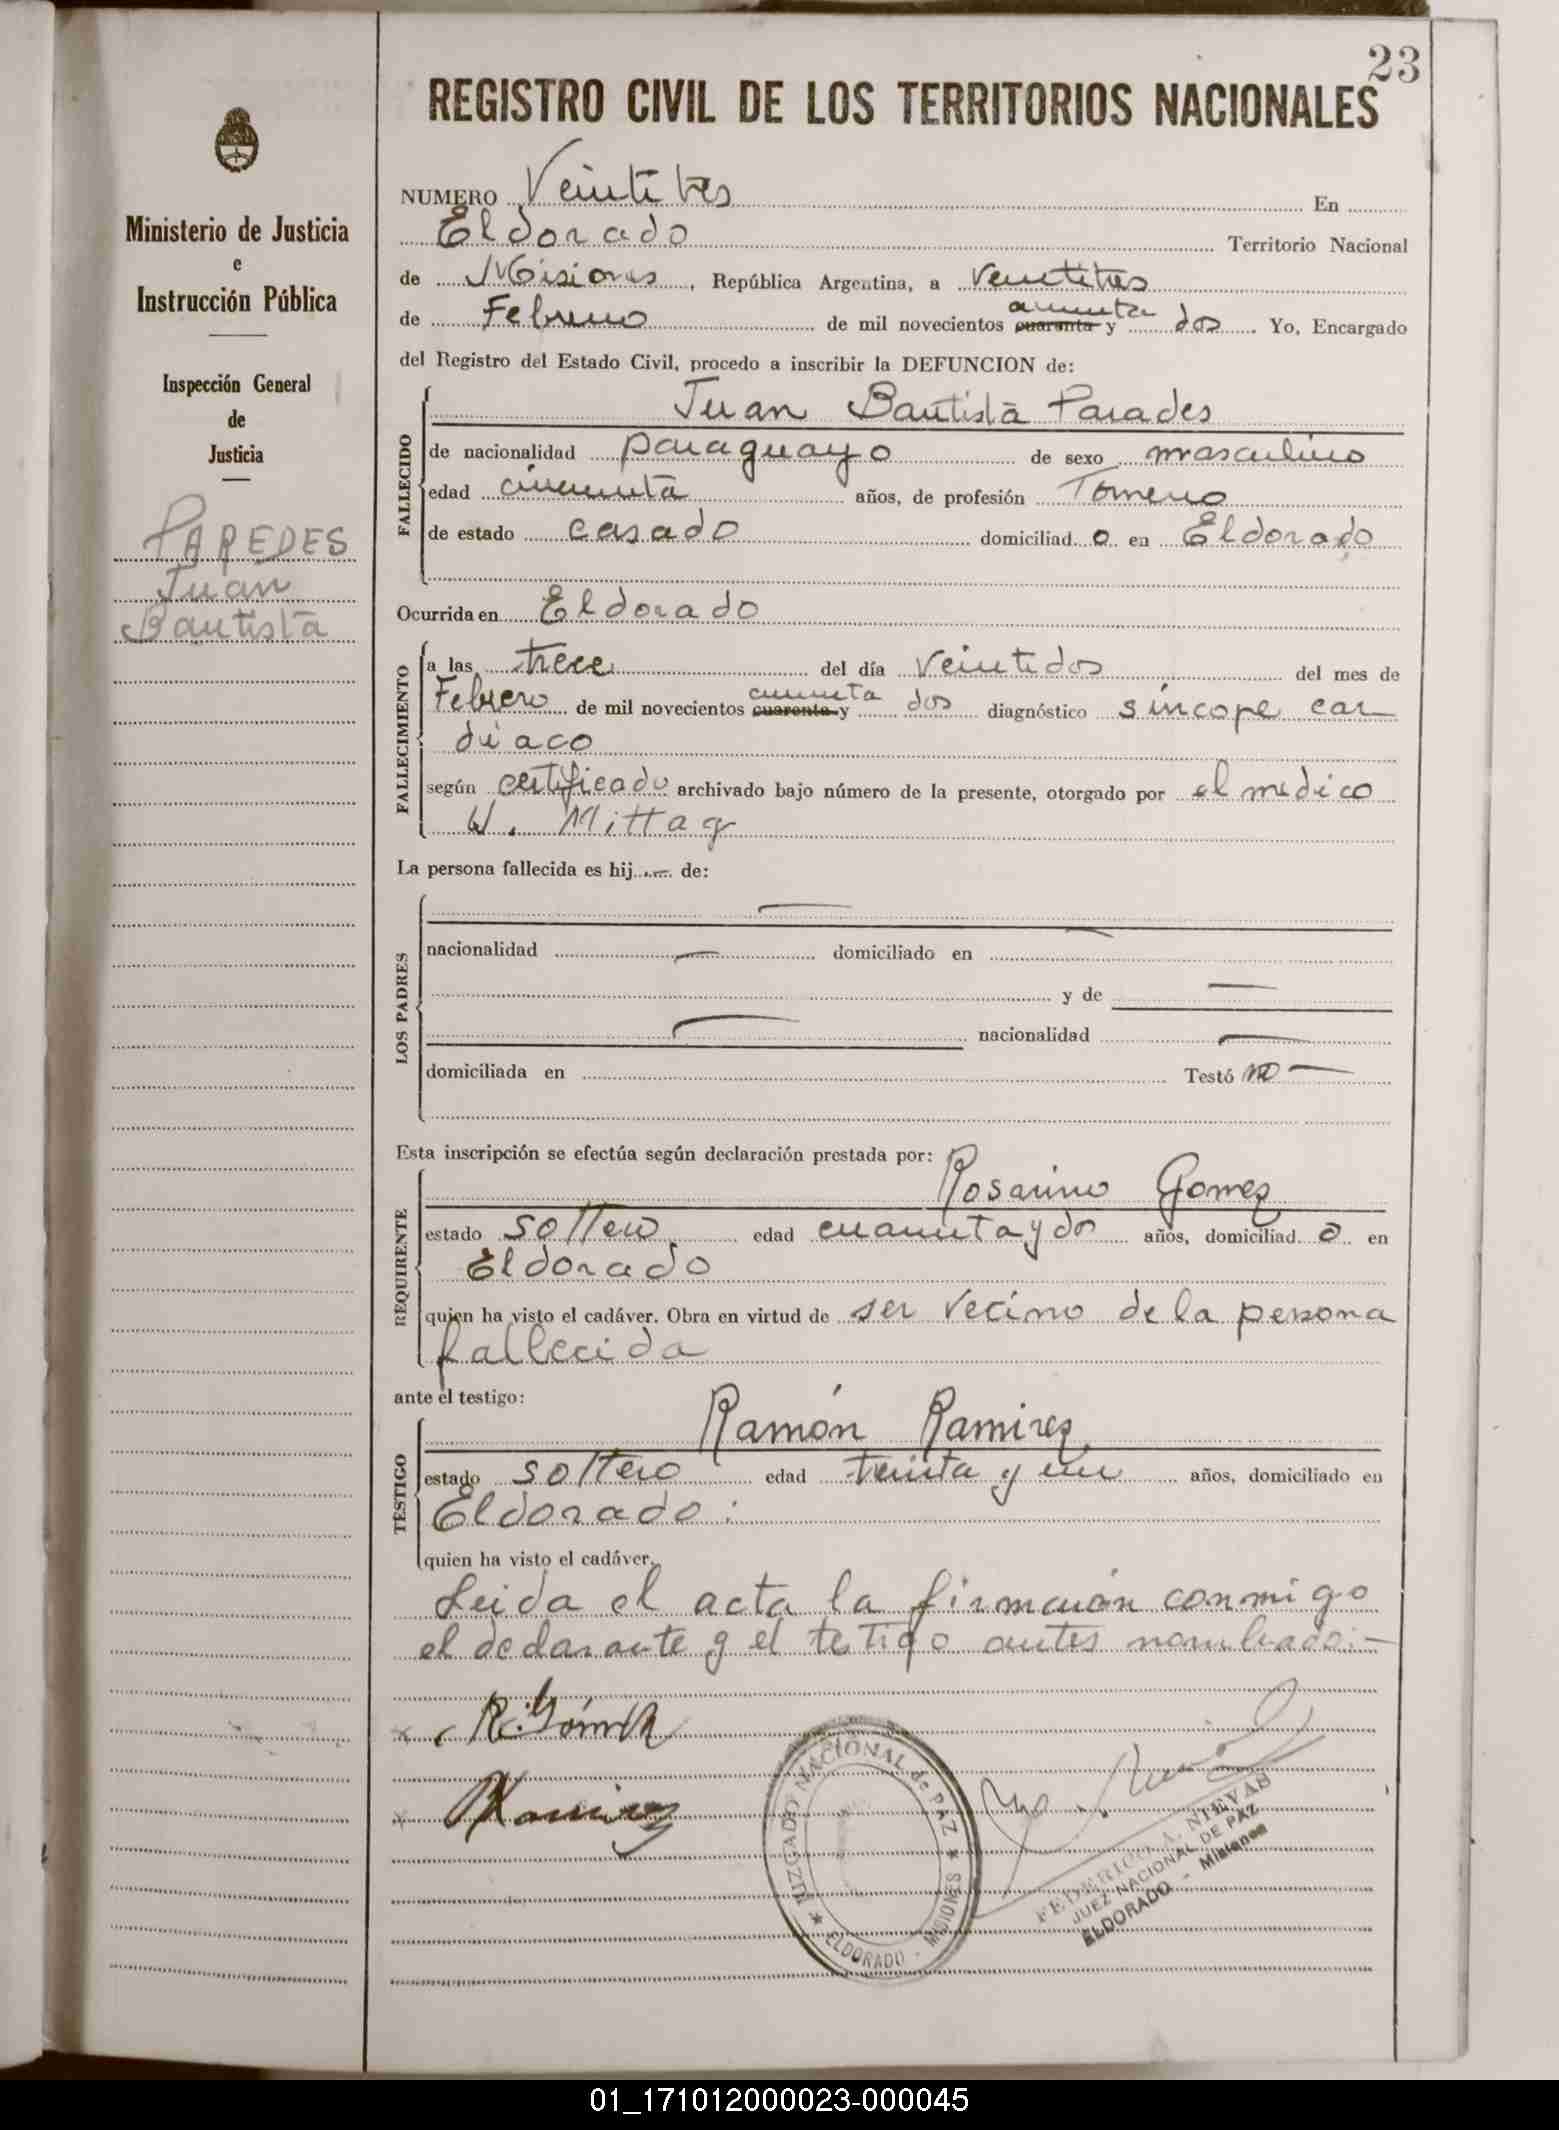 23
REGISTRO CIVIL DE LOS TERRITORIOS NACIONALES
Ministerio de Justicia
e
Instrucción Pública
Inspección General
de
Justicia
PAREDES
Juan
Bautista
NUMERO Veintitres En
Eldorado Territorio Nacional
de Misiones, República Argentina, a veintitres
cincuenta
de Febrero de mil novecientos cuarenta y dos Yo, Encargado
del Registro del Estado Civil, procedo a inscribir la DEFUNCION de:
FALLECIDO
Juan Bautista Parades
de nacionalidad paraguayo de sexo masculino
edad cincuenta años, de profesión Tornero
de estado casado domiciliad o en Eldorado
Ocurrida en Eldorado
FALLECIMIENTO
a las trece del día veintidos del mes de
cincuenta
Febrero de mil novecientos cuarenta y dos diagnóstico síncope car
diaco
según certificado archivado bajo número de la presente, otorgado por el medico
W. Mittag
La persona fallecida es hij de:
LOS PADRES
nacionalidad domiciliado en
y de
nacionalidad
domiciliada en Testó no
Esta inscripción se efectúa según declaración prestada por:
REQUIRENTE
Rosarino Gomez
estado soltero edad cuarenta y dos años, domiciliad o en
Eldorado
quien ha visto el cadáver. Obra en virtud de ser vecino de la persona
fallecida
ante el testigo:
TESTIGO
Ramón Ramirez
estado soltero edad treinta y un años, domiciliado en
Eldorado:
quien ha visto el cadáver.
Leida el acta la firmarón conmigo
el declarante y el testigo antes nombrado.-
R. Gómez
Ramirez
JUZGADO NACIONAL de PAZ
ELDORADO - MISIONES
FEDERICO A. NIEVAS
JUEZ NACIONAL DE PAZ
ELDORADO - Misiones
01_171012000023-000045